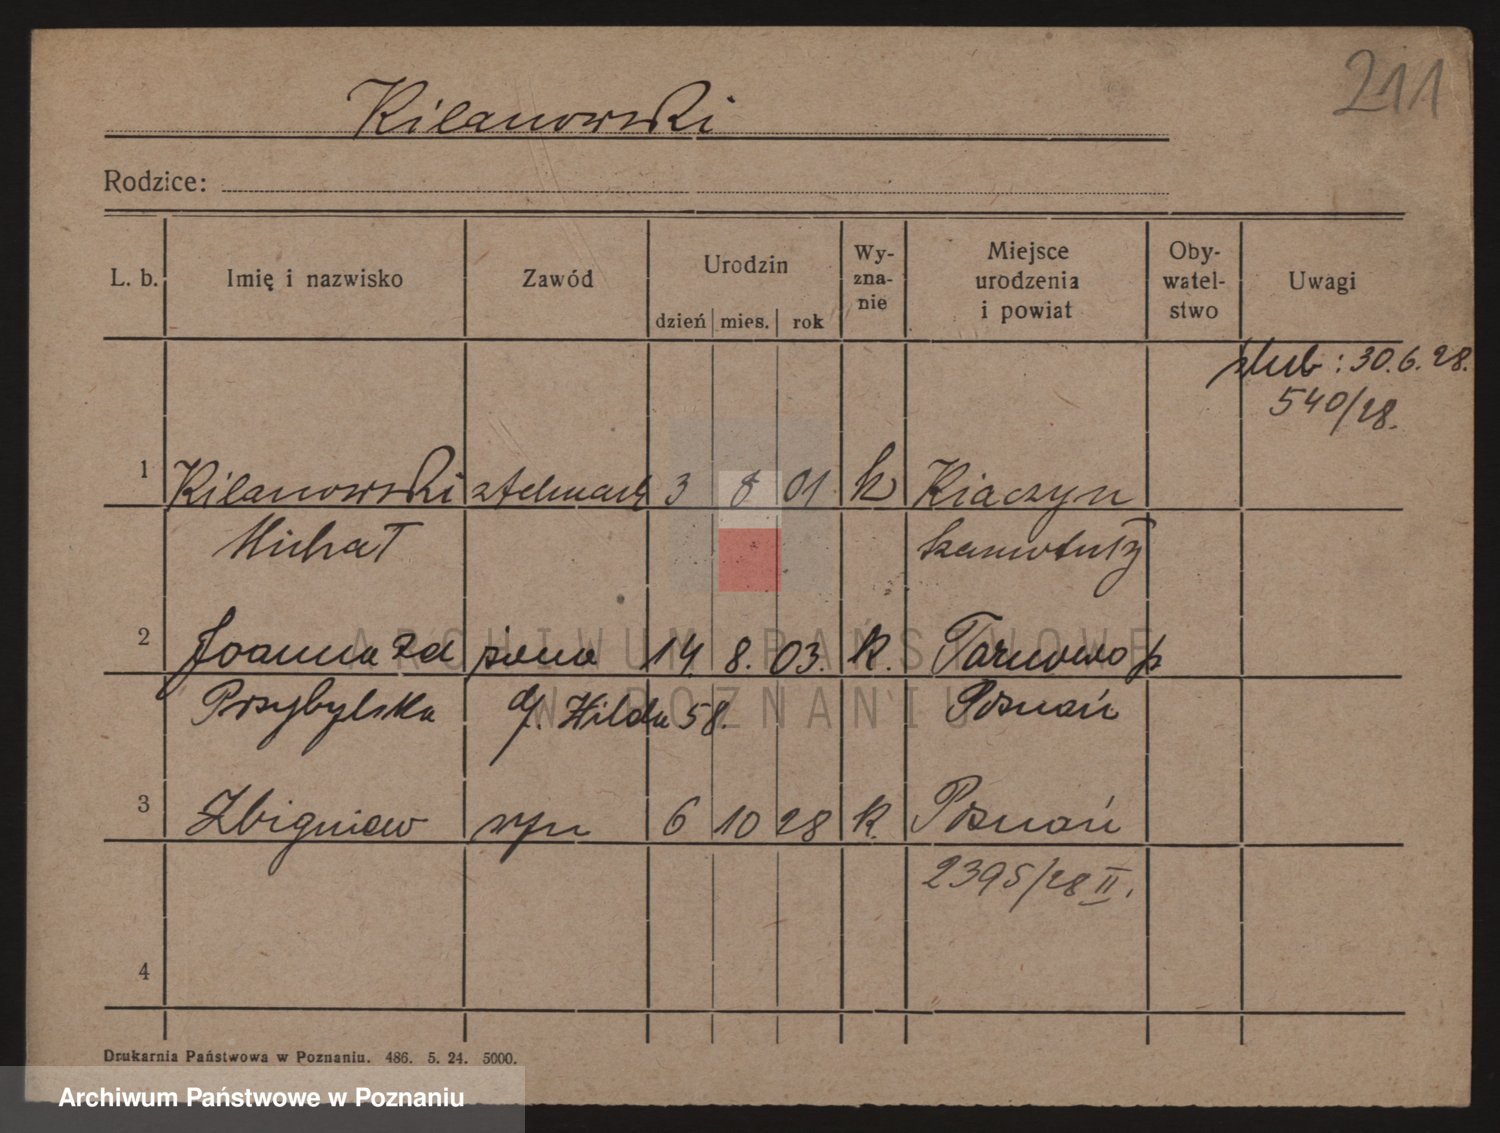 211
Kilanowski
Rodzice:
L. b. Imię i nazwisko Zawód Urodzin dzień mies. rok Wy-zna-nie Miejsce urodzenia i powiat Oby-watel-stwo Uwagi
ślub : 30.6.28.
540/28.
1 Kilanowski stelmach 3 8 01 k Kiączyn
Michał Szamotuły
2 Joanna zd żona 14. 8. 03. k. Tarnowo p
Przybylska d/. Wilda 58. Poznań
3 Zbigniew syn 6 10 28 k. Poznań
2395/28 II.
4
Drukarnia Państwowa w Poznaniu. 486. 5. 24. 5000.
ARCHIWUM PAŃSTWOWE
W POZNANIU
Archiwum Państwowe w Poznaniu